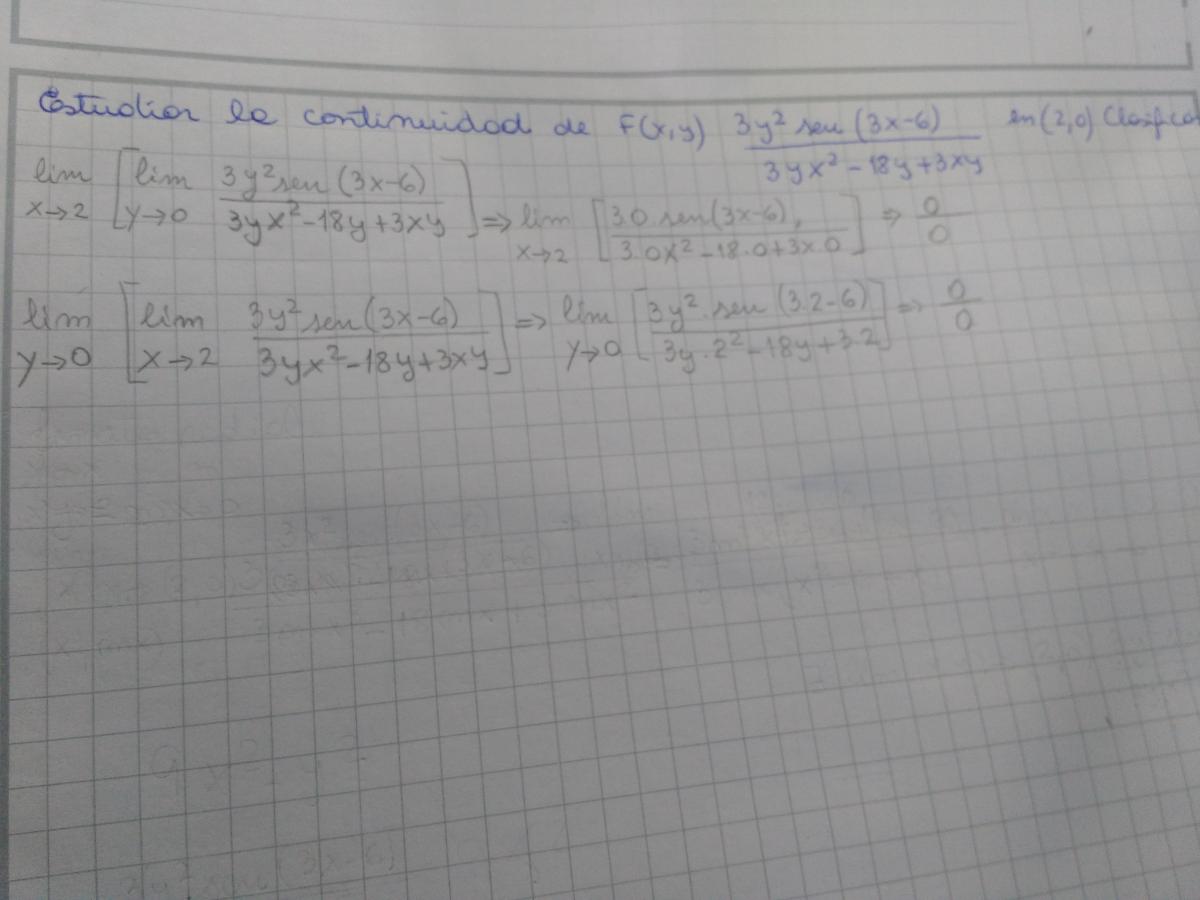 Estudiar la continuidad de F(x,y) 3y² sen (3x-6) / 3yx² - 18y + 3xy en (2,0) Clasificar
lim x→2 [lim y→0 3y² sen (3x-6) / 3yx² - 18y + 3xy] ⇒ lim x→2 [3.0. sen(3x-6). / 3.0x² - 18.0 + 3x0] ⇒ 0/0
lim y→0 [lim x→2 3y² sen (3x-6) / 3yx² - 18y + 3xy] ⇒ lim y→0 [3y². sen (3.2-6) / 3y.2² - 18y + 3.2] ⇒ 0/0